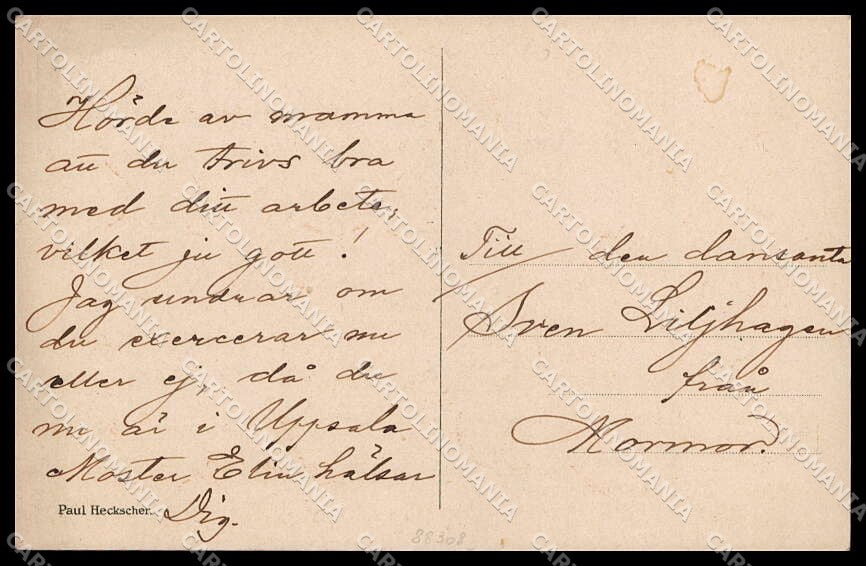 Hörde av mamma
att du trivs bra
med ditt arbete,
vilket ju gott!
Jag undrar om
du exercerar nu
eller ej, då du
nu är i Uppsala
Moster Elin hälsar
Dig.
Paul Heckscher.
88308
Till den dansante
Sven Liljhagen
från
Mormor.
CARTOLINOMANIA